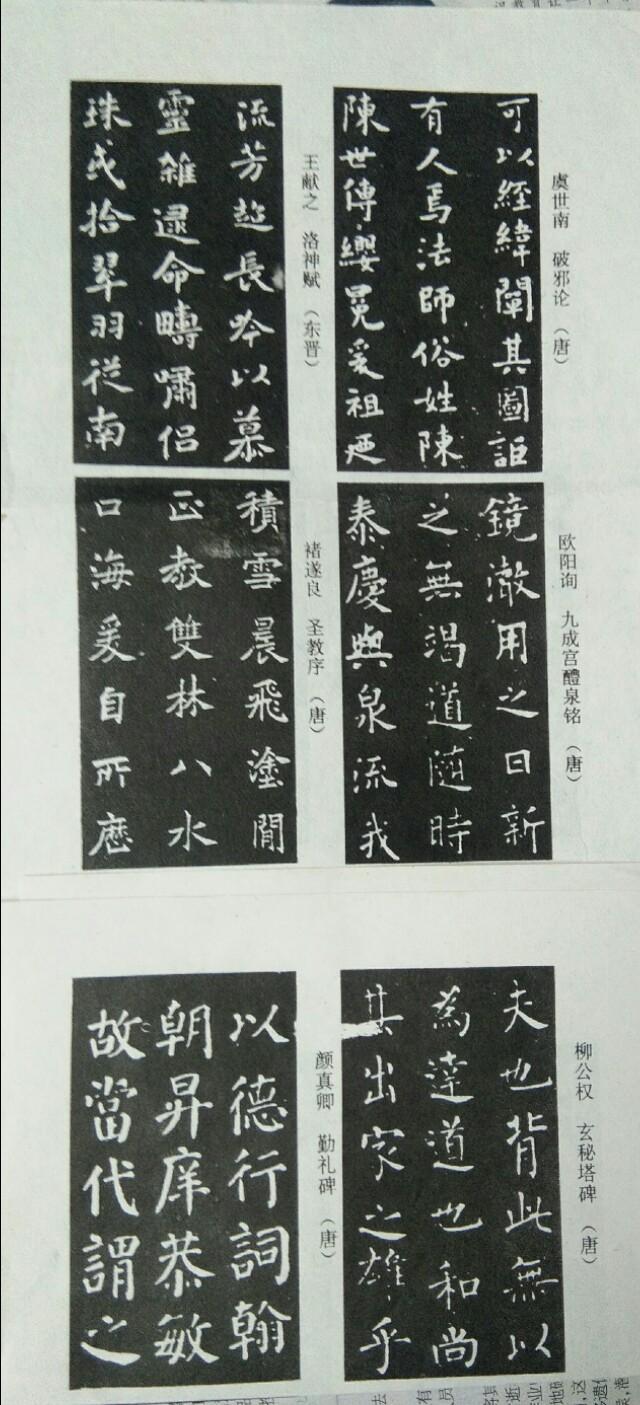 虞世南 破邪论 （唐）
可以經緯闡其圖詎
有人焉法師俗姓陳
陳世傳纓冕爰祖
王献之 洛神赋 （东晋）
流芳超長吟以慕
靈雜遝命疇嘯侣
珠或拾翠羽從南
欧阳询 九成宫醴泉铭 （唐）
鏡澈用之日新
之無竭道随時
泰慶與泉流我
褚遂良 圣教序 （唐）
積雪晨飛塗閒
正教雙林八水
口海爰自所歷
柳公权 玄秘塔碑 （唐）
夫也背此無以
為達道也和尚
其出家之雄乎
颜真卿 勤礼碑 （唐）
以德行詞翰
朝昇庠恭敏
故當代謂之